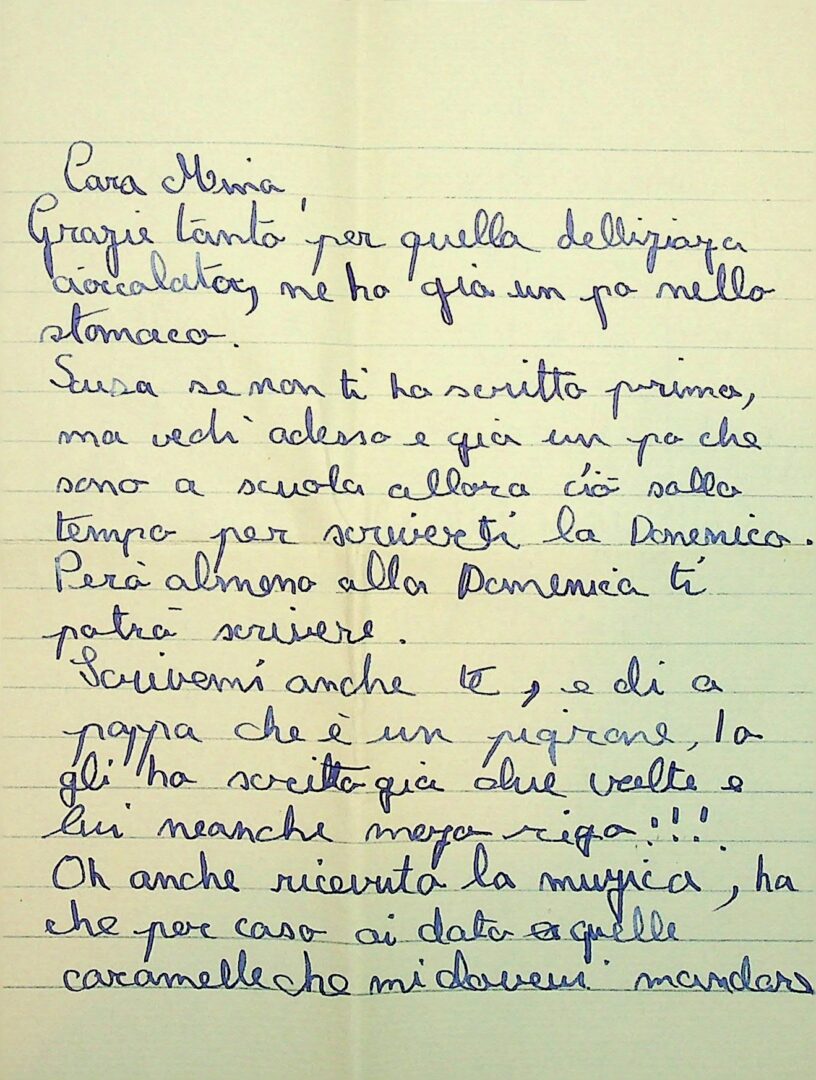 Cara Mina,
Grazie tanto per quella delliziaza
cioccalata, ne ho già un po nello
stomaco.
Scusa se non ti ho scritto prima,
ma vedi adesso e già un po che
sono a scuola allora ciò sollo
tempo per scriverti la Domenica.
Però almeno alla Domenica ti
potrò scrivere.
Scrivemi anche te, e di a
pappa che è un pigrone, Io
gli ho scritto già due volte e
lui neanche meza riga!!!
Oh anche ricevuto la muzica, ha
che per caso ai dato quelle
caramelle che mi dovevi mandare